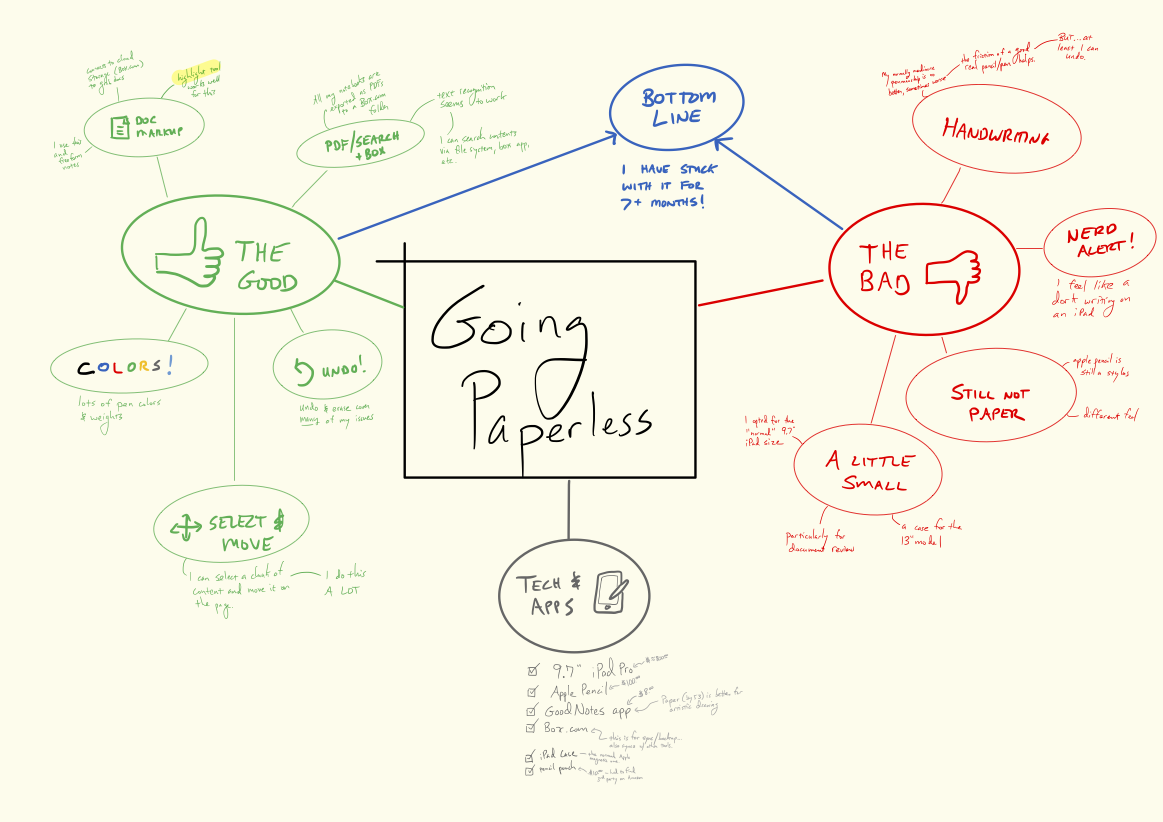 Going
Paperless
BOTTOM
LINE
I HAVE STUCK
WITH IT FOR
7+ MONTHS!
THE
GOOD
DOC
MARKUP
connects to cloud
storage (Box.com)
highlight tool
works well
for this
I use
and
freeform
notes
PDF/SEARCH
+ BOX
All my notebooks are
exported as PDFs
to a Box.com
folder
text recognition
seems to work
I can search contents
via file system, box app,
etc.
COLORS!
lots of pen colors
& weights
UNDO!
Undo & erase
many of my issues
SELECT &
MOVE
I can select a chunk of
content and move it on
the page.
I do this
A LOT
THE
BAD
HANDWRITING
My normally mediocre
penmanship is no
better, sometimes worse
the friction of a good
real pencil/pen helps.
BUT...at
least I can
undo.
NERD
ALERT!
I feel like a
dork writing on
an iPad
STILL NOT
PAPER
apple pencil is
still a stylus
different feel
A LITTLE
SMALL
I opted for the
"normal" 9.7"
iPad size
particularly for
document review
a case for the
13" model
TECH &
APPS
9.7" iPad Pro
Apple Pencil
$100
GoodNotes app
$8
Paper (by 53) is better for
artistic drawing
Box.com
this is for sync/backup
iPad case
pencil pouch